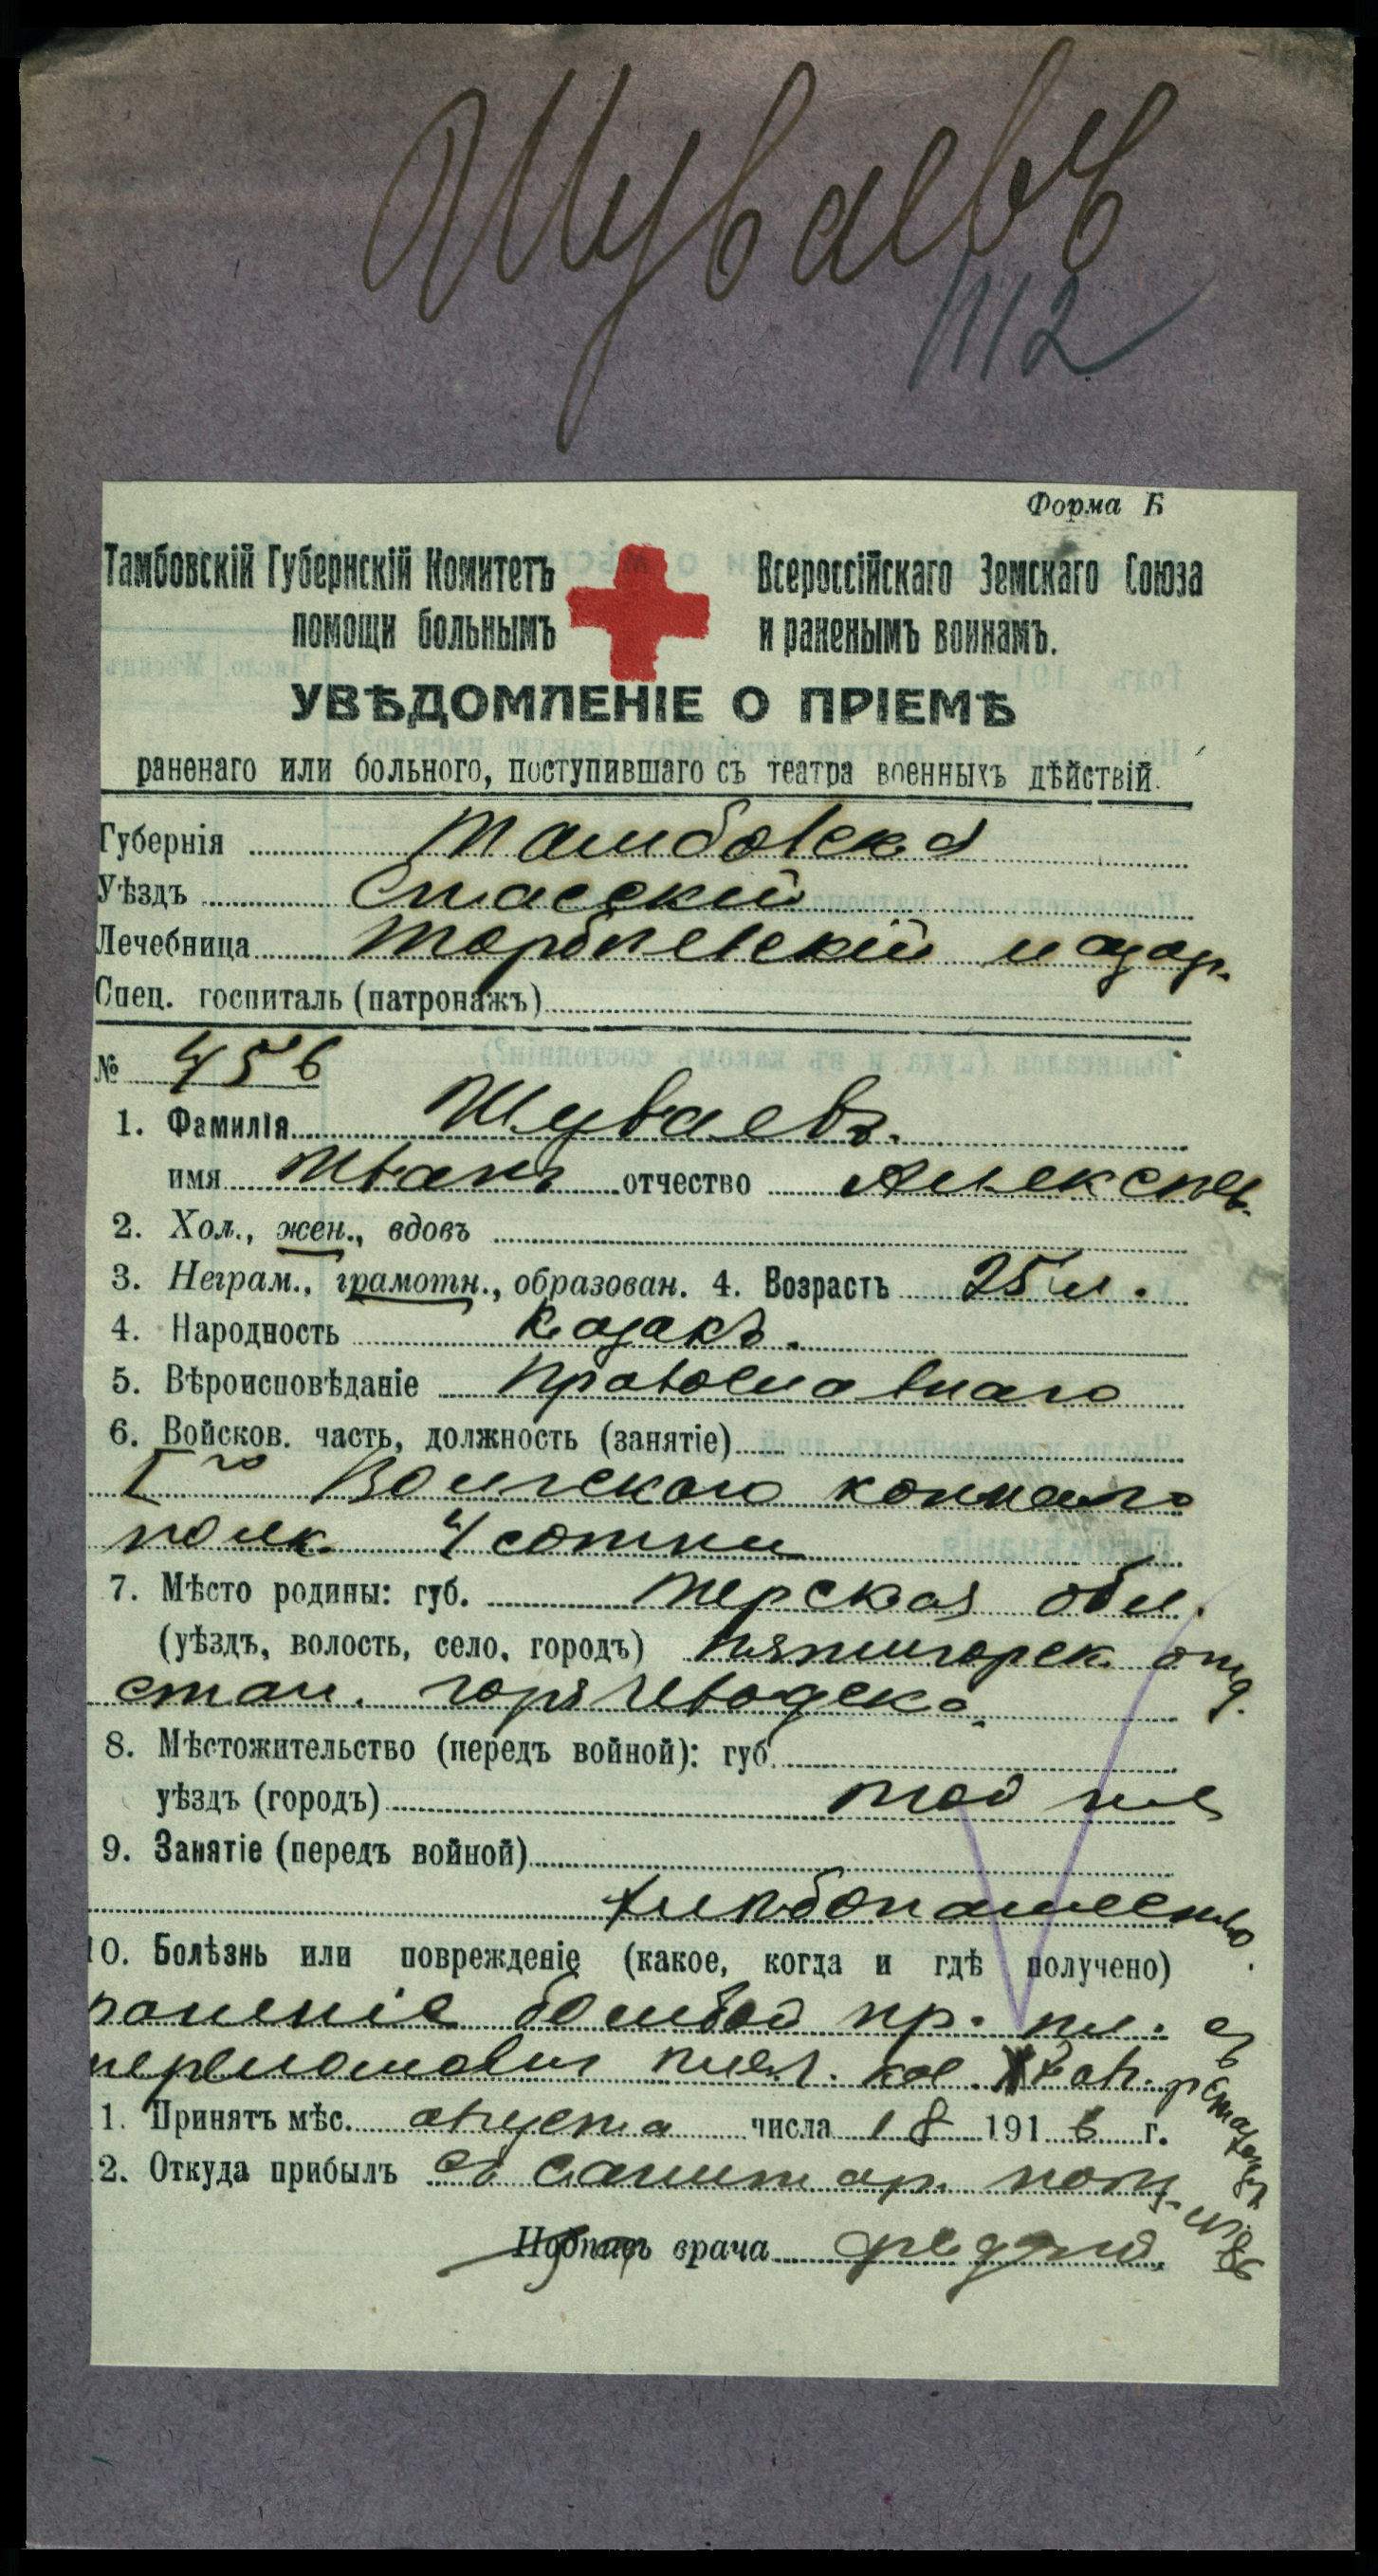 Шуваевъ
1112
Форма Б
Тамбовскій Губернскій Комитетъ Всероссійскаго Земскаго Союза
помощи больнымъ и раненымъ воинамъ.
УВѢДОМЛЕНІЕ О ПРІЕМѢ
раненаго или больного, поступившаго съ театра военныхъ дѣйствій.
Губернія Тамбовская
Уѣздъ Спасскій
Лечебница Торбѣевскій лазар.
Спец. госпиталь (патронажъ)
№ 456
1. Фамилія Шуваевъ.
имя Иванъ отчество Алексѣев.
2. Хол., жен., вдовъ
3. Неграм., грамотн., образован. 4. Возрастъ 25 л.
4. Народность Казакъ.
5. Вѣроисповѣданіе Православнаго
6. Войсков. часть, должность (занятіе)
I го Волгскаго коннаго
полк. 4 сотни
7. Мѣсто родины: губ. Терская обл.
(уѣздъ, волость, село, городъ) Пятигорск. отд.
стан. Горячеводска.
8. Мѣстожительство (передъ войной): губ.
уѣздъ (городъ) тод же
9. Занятіе (передъ войной)
хлѣбопашество.
10. Болѣзнь или поврежденіе (какое, когда и гдѣ получено)
раненіе бомбой пр. пл. съ
переломомъ плеч. кос.
1. Принятъ мѣс. августа числа 18 1916 г.
2. Откуда прибылъ съ санитар. поѣзд.
Подпись врача